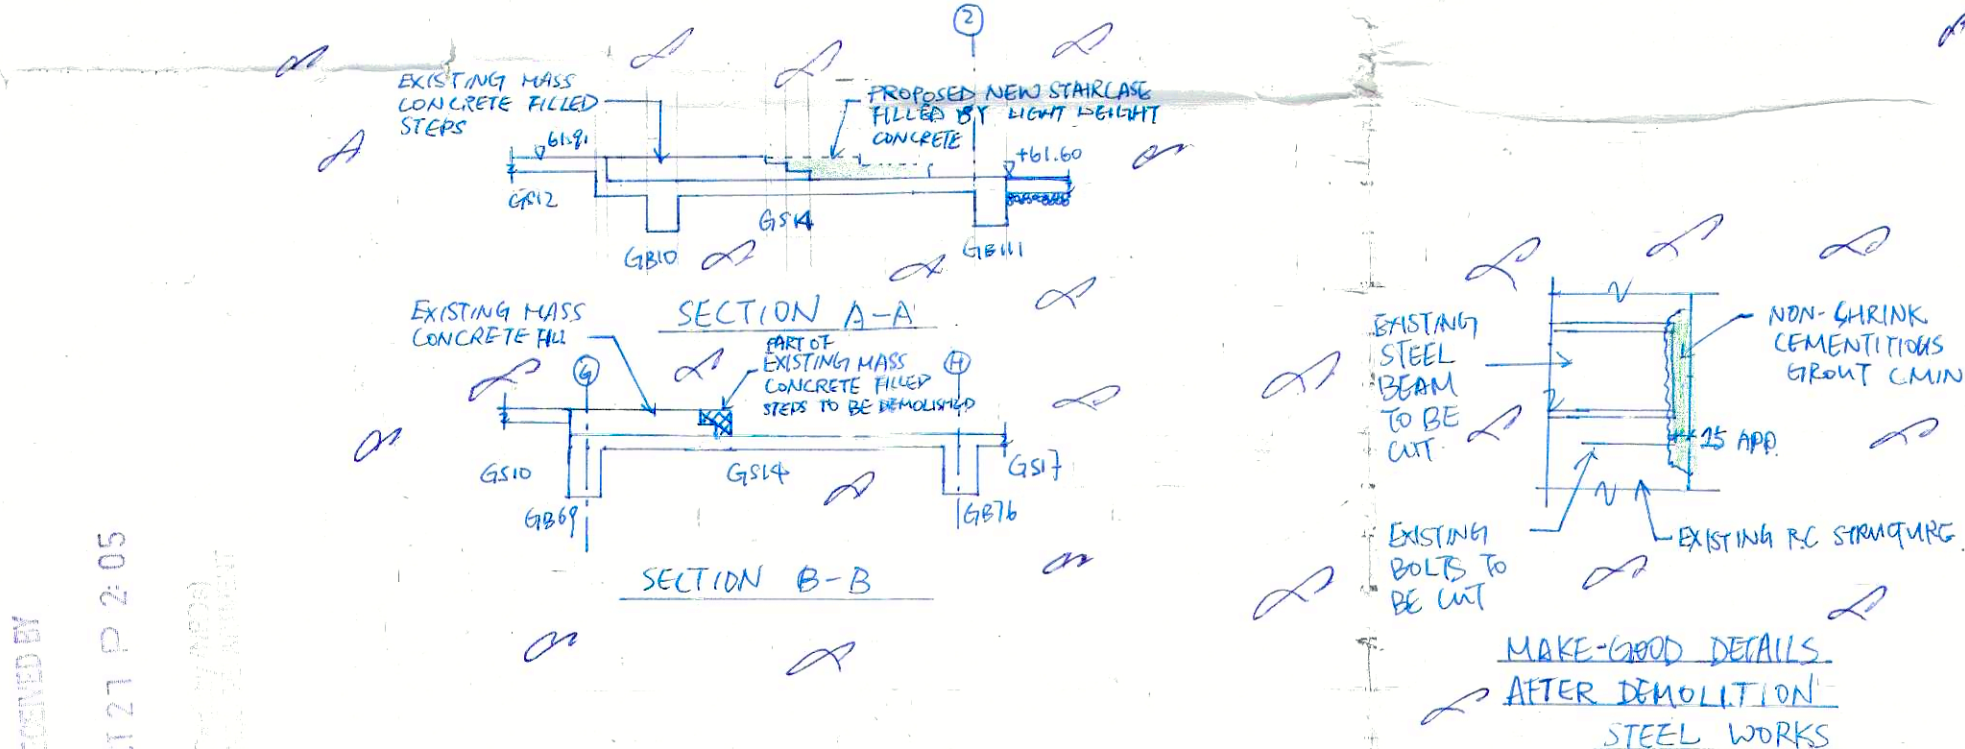 2
EXISTING MASS
CONCRETE FILLED
STEPS
PROPOSED NEW STAIRCASE
FILLED BY LIGHT WEIGHT
CONCRETE
61.91
+61.60
GS12
GS14
GB10
GB111
SECTION A-A
EXISTING MASS
CONCRETE FILL
PART OF
EXISTING MASS
CONCRETE FILLED
STEPS TO BE DEMOLISHED
G
H
GS10
GS14
GS17
GB69
GB76
SECTION B-B
EXISTING
STEEL
BEAM
TO BE
CUT.
NON-SHRINK
CEMENTITIOUS
GROUT
25 APP.
EXISTING
BOLTS TO
BE CUT
EXISTING R.C STRUCTURE.
MAKE-GOOD DETAILS
AFTER DEMOLITION
STEEL WORKS
BY
21 P 2:05